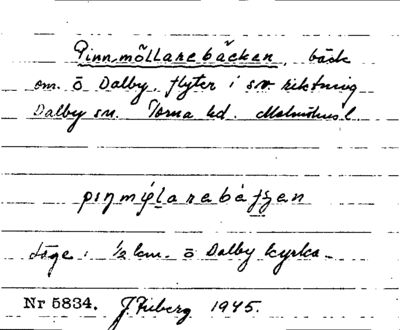 Pinnmöllarebäcken, bäck
om. ö Dalby, flyter i sv. riktning
Dalby sn. Torna hd. Malmöhus l.
pinmýlarebàʃʒen
läge: ½ km. ö Dalby kyrka
Nr 5834. J Friberg 1945.